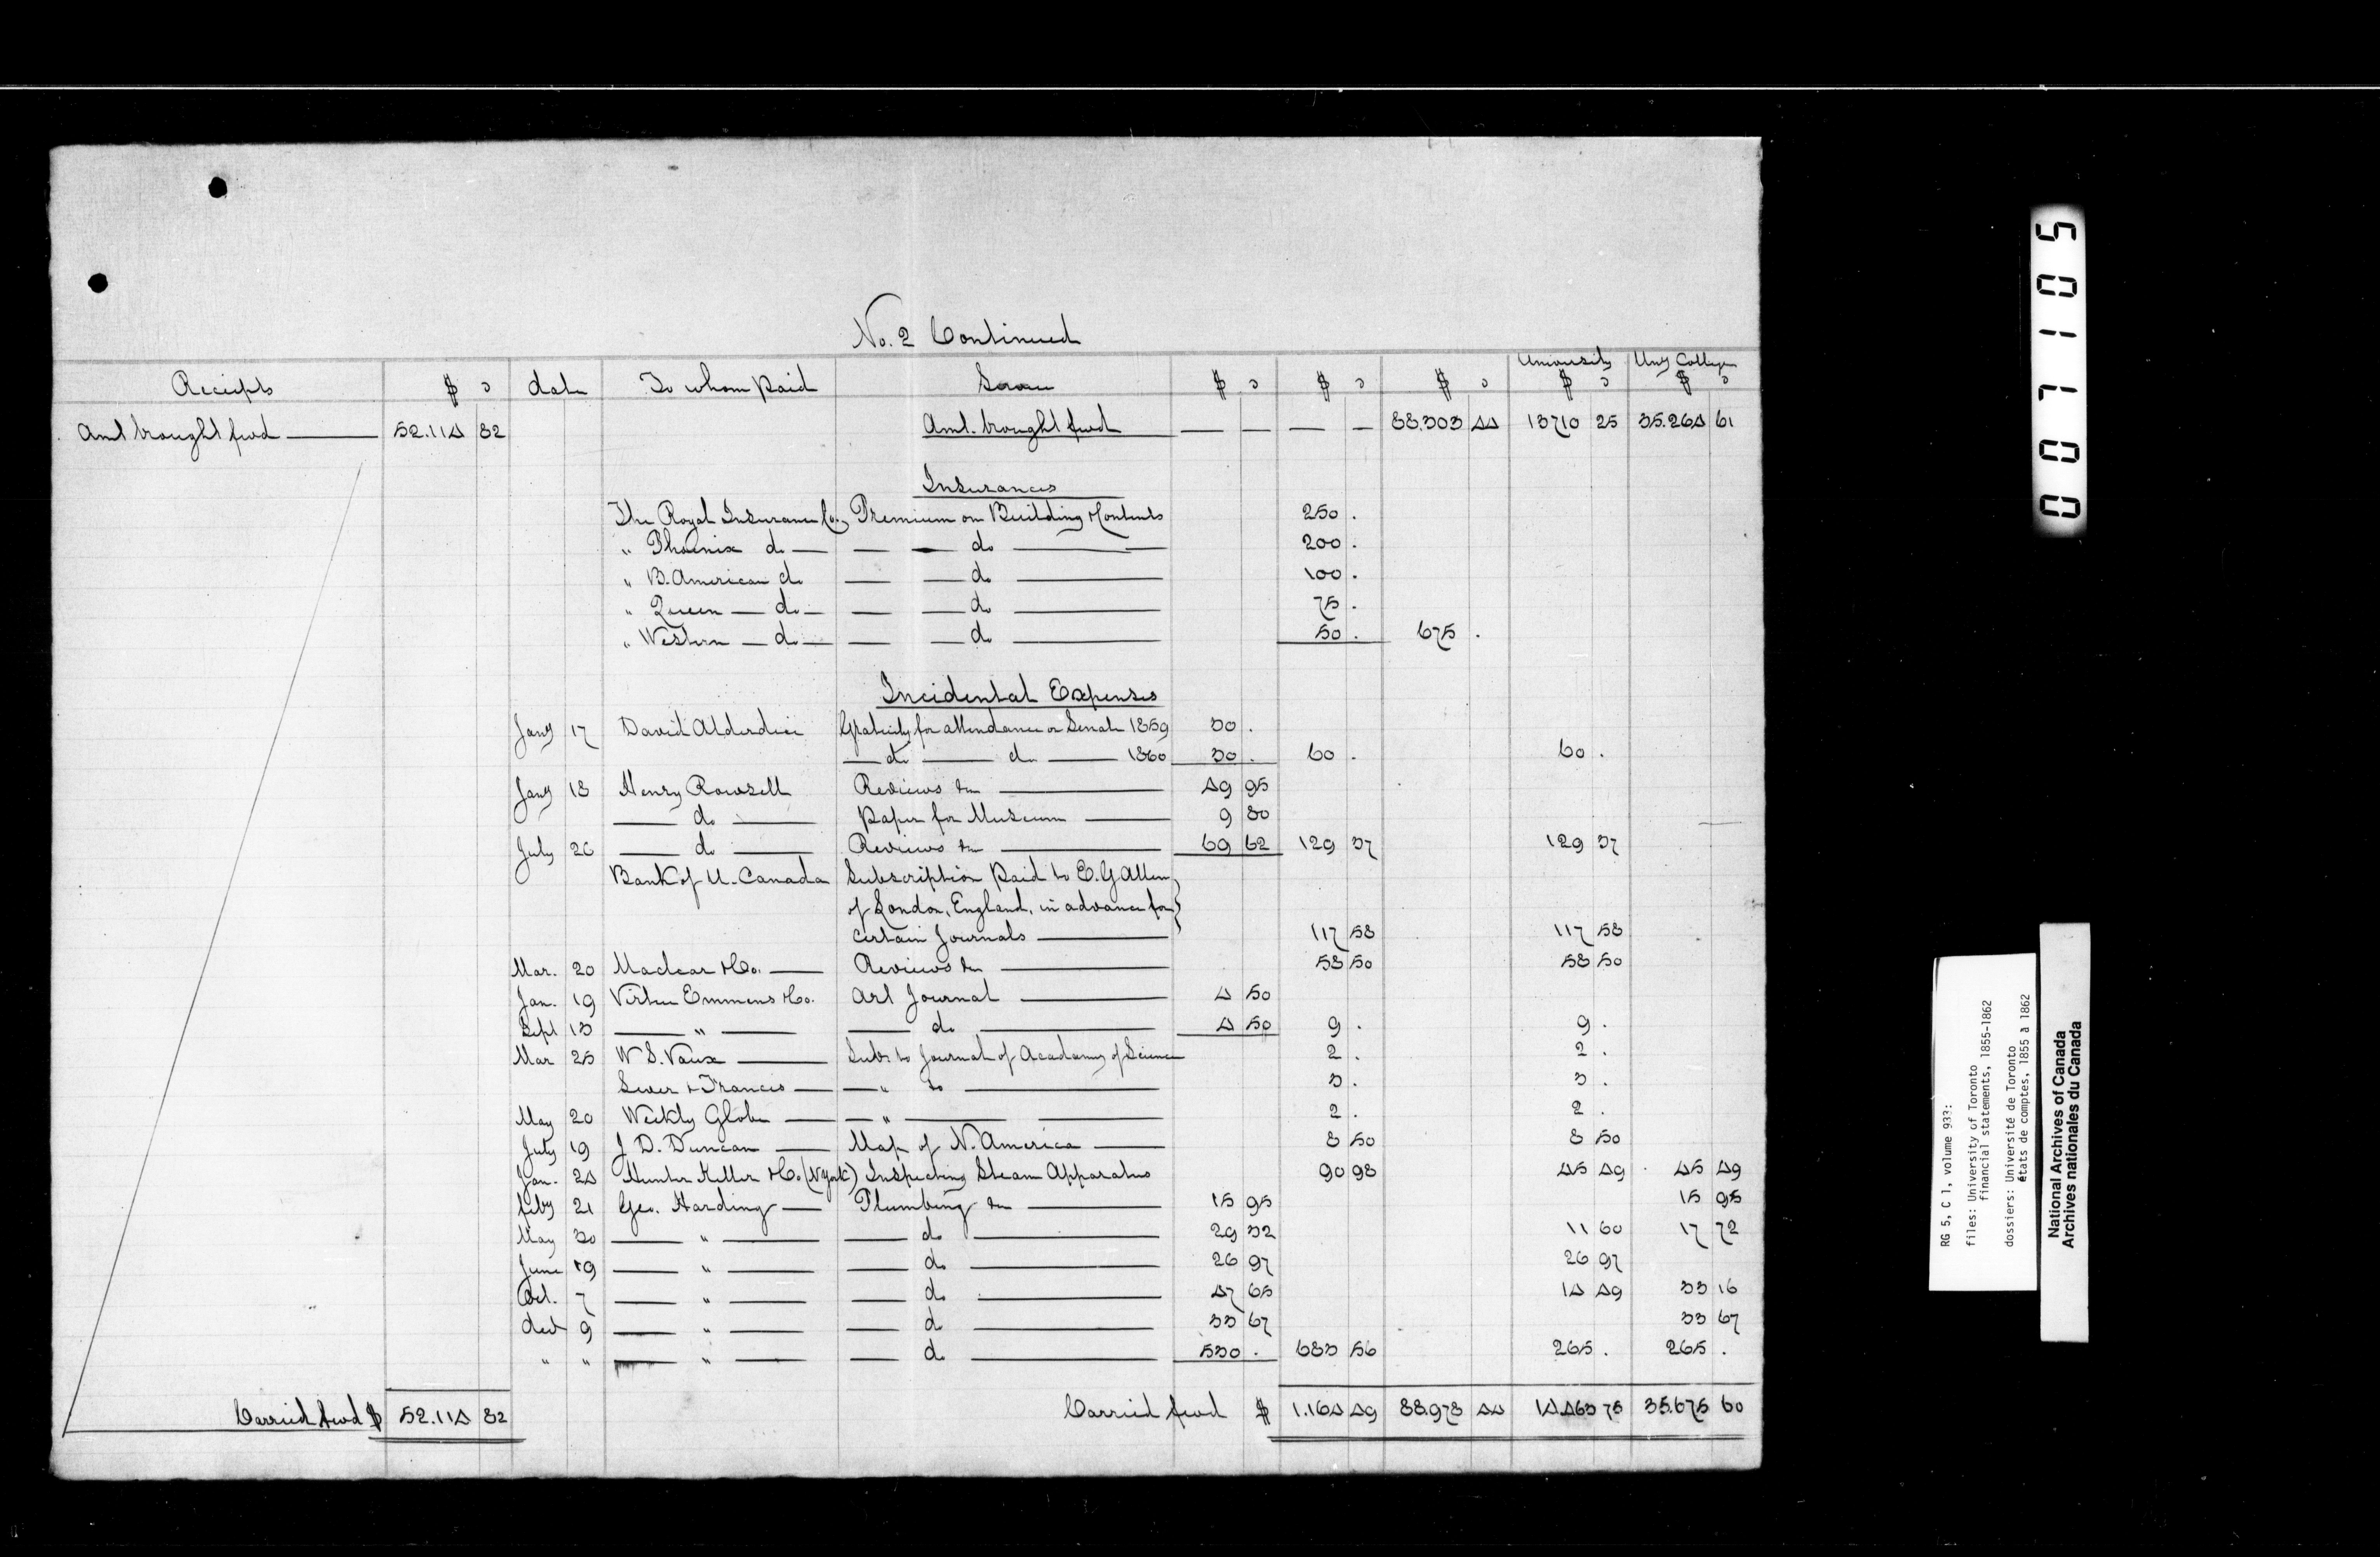 No. 2 Continued
Receipts $ c date To whom paid $ c $ c $ c University $ c Uny College $ c
Amt brought fwd 52.114 82 Amt. brought fwd — — — — 88.303 44 13710 25 35.264 61
Insurances
The Royal Insurance Co. Premium on Building & Contents 250 .
" Phoenix do — — — do — 200 .
" B. American do — — do — 100 .
" Queen — do — — — do — 75 .
" Western — do — — — do — 50 . 675 .
Incidental Expenses
Jany 17 David Alderdice Gratuity for attendance on Senate 1859 30 .
— do — do — 1860 30 . 60 . 60 .
Jany 18 Henry Rowsell Reviews &c — 49 95
— do — Paper for Museum — 9 80
July 26 — do — Reviews &c — 69 62 129 37 129 37
Bank of U. Canada Subscription paid to E. G Allen
of London, England, in advance for
certain Journals — 117 58 117 58
Mar. 20 Maclear & Co. — Reviews &c — 58 50 58 50
Jan. 19 Virtue Emmens & Co. Art Journal — 4 50
Sept 13 — " — — do — 4 50 9 . 9 .
Mar 25 W S. Vaux — Subs: to Journal of Academy of Science 2 . 2 .
Sever & Francis — — " to — 3 . 3 .
May 20 Weekly Globe — — " — 2 . 2 .
July 19 J D. Duncan — Map of N. America — 8 50 8 50
Jan. 24 Hunter Keller & Co. (N York) Inspecting Steam Apparatus 90 98 45 49 45 49
feby 21 Geo. Harding — Plumbing &c — 15 95 15 95
May 30 — " — — do — 29 32 11 60 17 72
June 19 — " — — do — 26 97 26 97
Oct. 7 — " — — do — 47 65 14 49 33 16
dec 9 — " — — do — 33 67 33 67
" " — " — — do — 530 . 683 56 265 . 265 .
Carried fwd $ 52.114 82 Carried fwd $ 1.164 49 88.978 44 14.463 75 35.675 60
007105
RG 5, C 1, volume 933:
files: University of Toronto
financial statements, 1855-1862
dossiers: Université de Toronto
états de comptes, 1855 à 1862
National Archives of Canada
Archives nationales du Canada